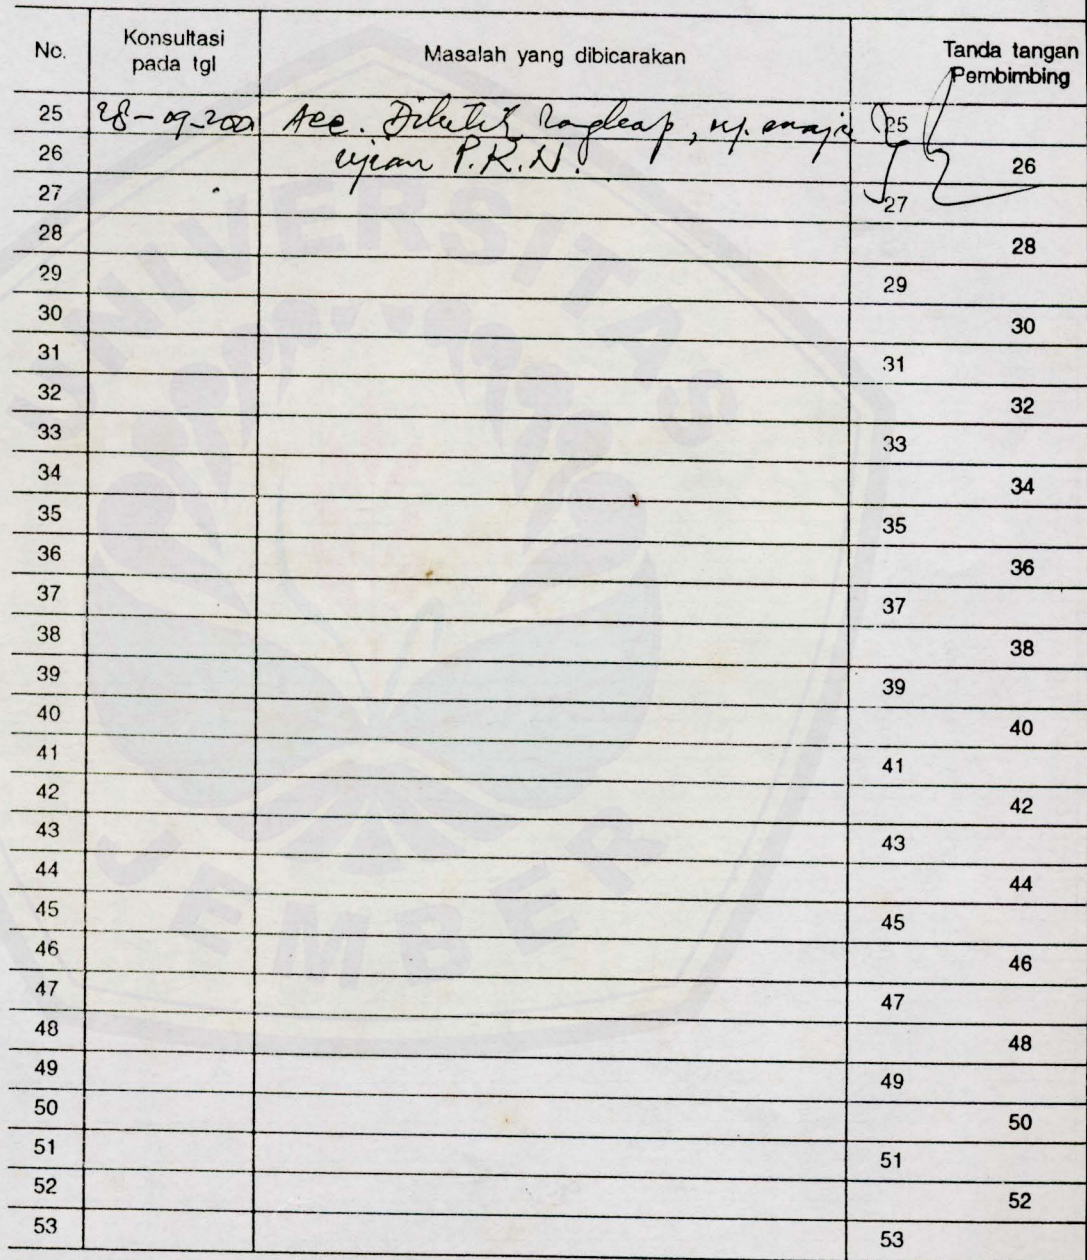 No. Konsultasi pada tgl Masalah yang dibicarakan Tanda tangan Pembimbing
25 28-09-2001 Acc. Diketik rangkap, 25
26 ujian P.K.N. 26
27 27
28 28
29 29
30 30
31 31
32 32
33 33
34 34
35 35
36 36
37 37
38 38
39 39
40 40
41 41
42 42
43 43
44 44
45 45
46 46
47 47
48 48
49 49
50 50
51 51
52 52
53 53
UNIVERSITAS
JEMBER